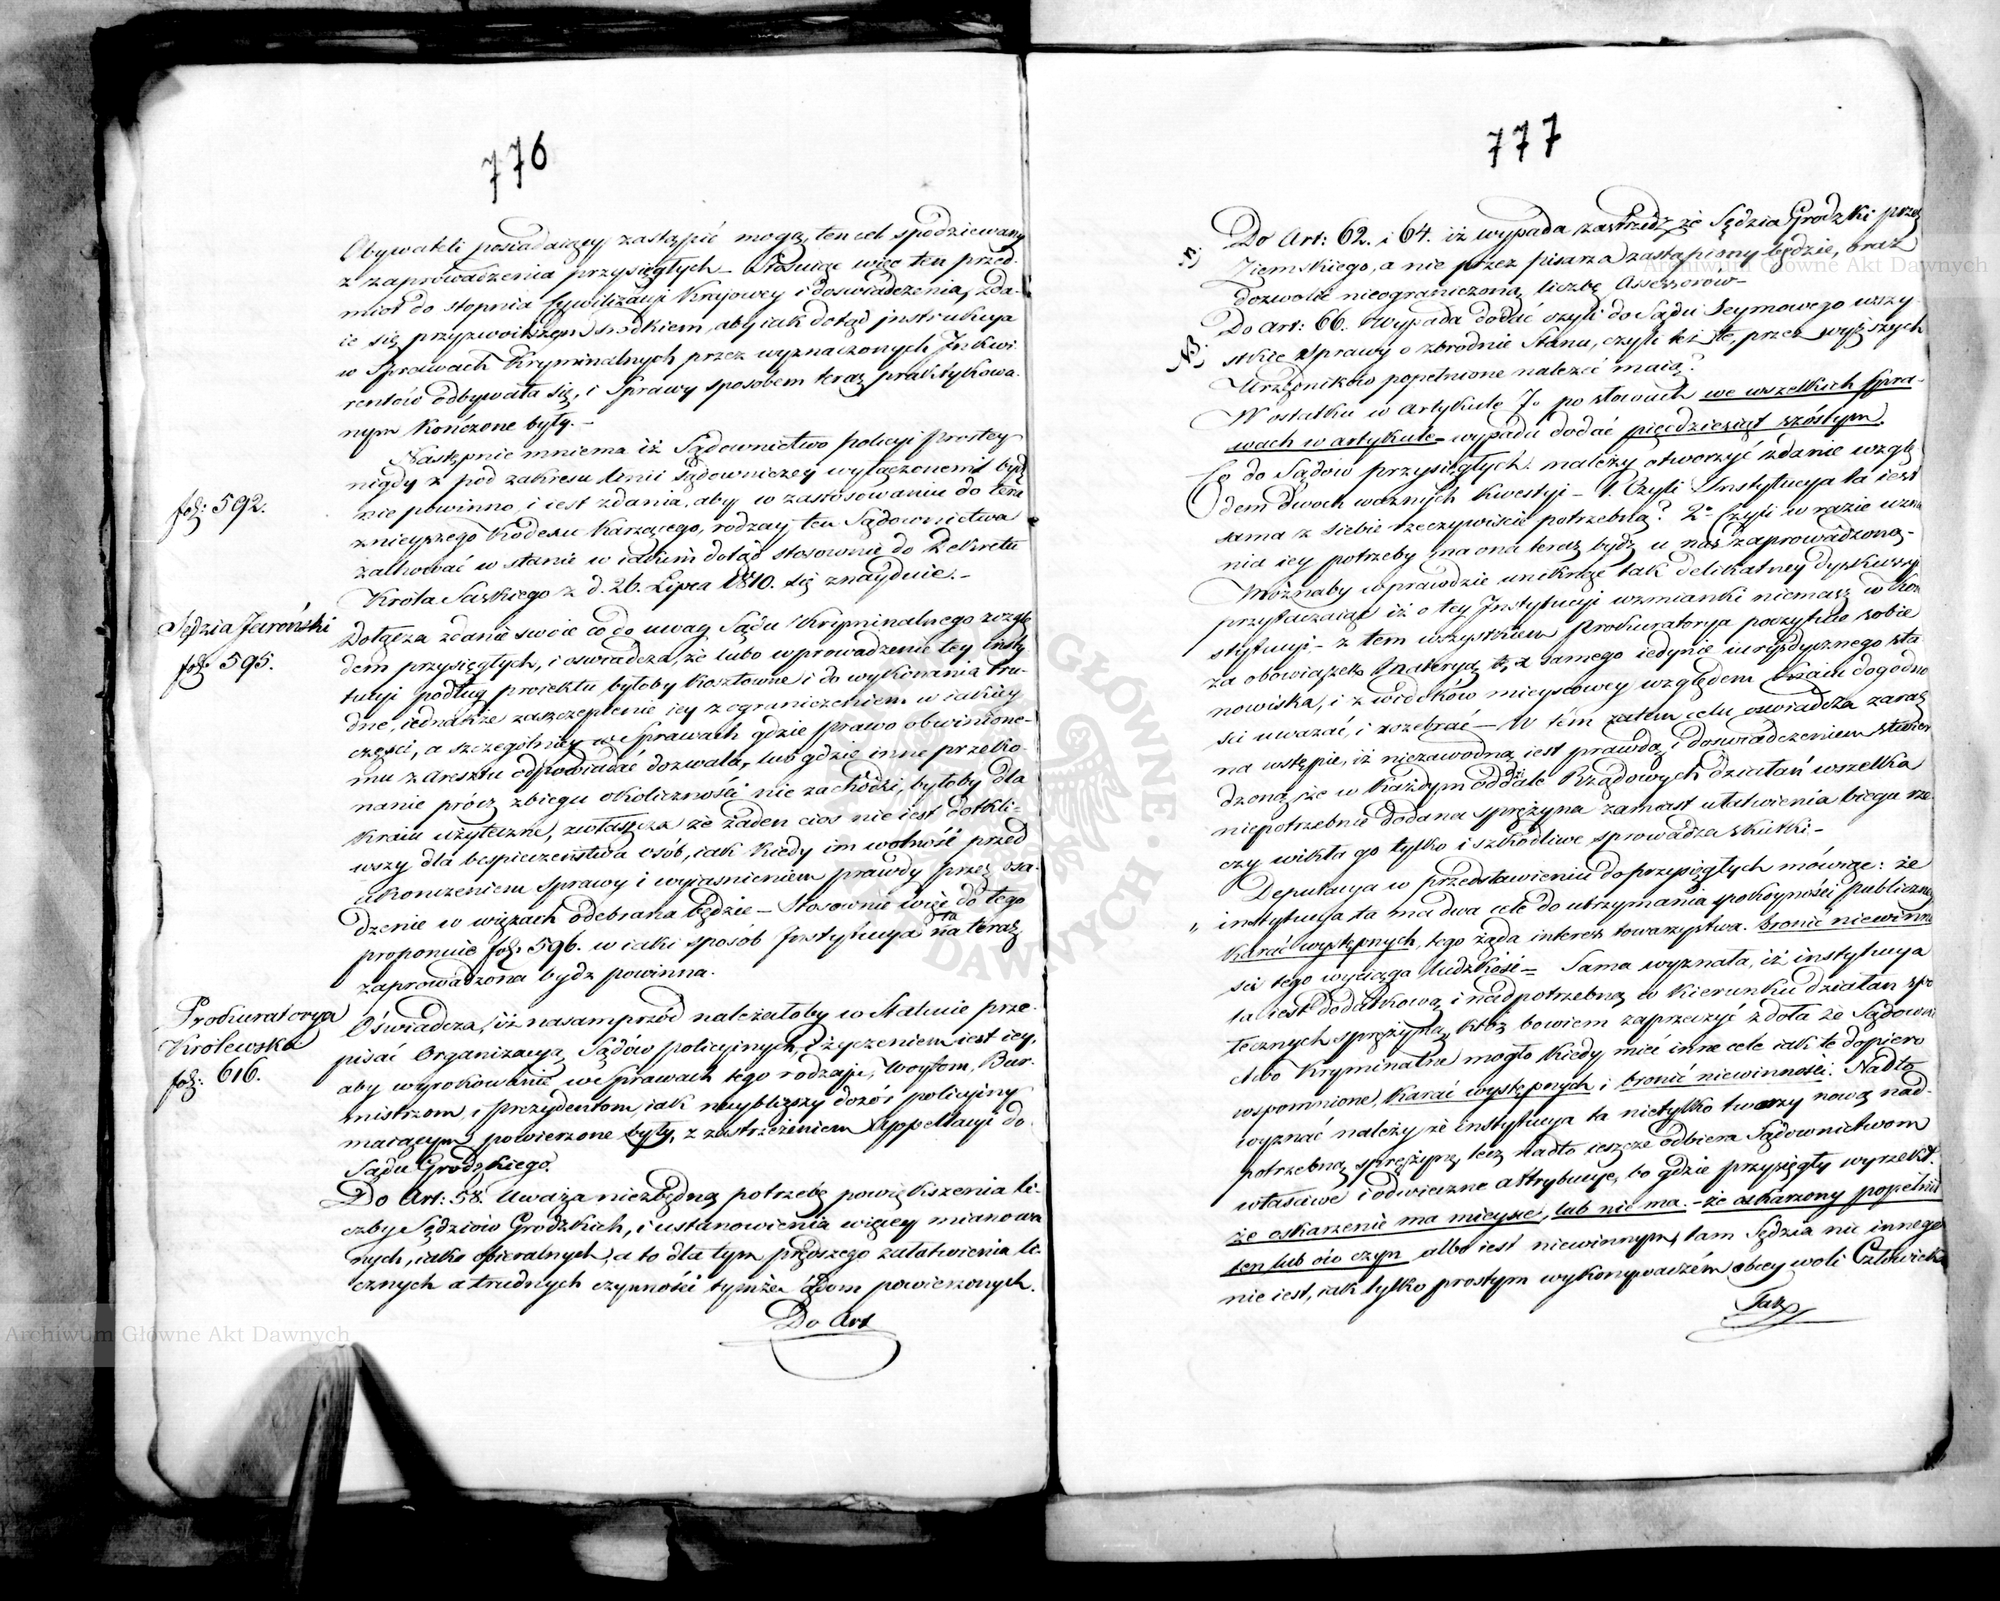 776
Obywateli posiadaiący zastąpić mogą, ten cel spodziewany
z zaprowadzenia przysięgłych – Stosuiąc więc ten przed-
miot do stopnia Cywilizacyi Krajowey i doswiadczenia, zda-
ie się przyzwoitszym srodkiem, aby iak dotąd instrukcya
w Sprawach Kryminalnych przez wyznaczonych Inkwi-
rentów odbywała się, i Sprawy sposobem teraz praktykowa-
nym kończone były. –
Następnie mniema iż Sądownictwo policyi prostey
nigdy z pod zakresu linii sądowniczey wyłączonemi bydź
nie powinno, i iest zdania, aby w zastosowaniu do tera
znieyszego Kodexu Karzącego, rodzay ten Sądownictwa
zachować w stanie w iakim dotąd stosownie do Dekretu
Króla Saskiego z d. 26. Lipca 1810. się znayduie. –
fol: 592.
Sędzia Jawoński
fol: 595.
Dołącza zdanie swoie co do uwag Sądu Kryminalnego wzglę
dem przysięgłych, i oswiadcza, że lubo wprowadzenie tey Insty
tucyi podług proiektu byłoby kosztowne i do wykonania tru-
dne, iednakże zaszczepienie iey z ograniczeniem w iakiey
częsci, a szczególniey we Sprawach gdzie prawo obwinione-
mu z aresztu odpowiadać dozwala, lub gdzie inne przeko-
nanie prócz zbiegu okoliczności nie zachodzi, byłoby dla
Kraiu użyteczne, zwłaszcza że żaden cios nie iest dotkli-
wszy dla bespieczeństwa osób, iak kiedy im wolność przed
ukonczeniem sprawy i wyiasnieniem prawdy przez osa-
dzenie w więzach odebrana będzie – Stosownie więc do tego
proponuie fol: 596. w iaki sposób Instytucya ta na teraz
zaprowadzona bydz powinna.
Prokuratorya
Królewska
fol: 616.
Oświadcza, iż nasamprzód należałoby w Statucie prze-
pisać Organizacyą Sądów policyinych, i życzeniem iest iey,
aby wyrokowanie we Sprawach tego rodzaju, Woytom, Bur-
mistrzom i prezydentom, iak naybliższy dozór policyiny
maiącym powierzone były, z zastrzeżeniem Appellacyi do
Sądu Grodzkiego.
Do Art: 58. Uważa niezbędną potrzebę powiększenia li-
czby Sędziów Grodzkich, i ustanowienia więcey mianowa
nych, iako obieralnych, a to dla tym prędszego załatwienia li-
cznych a trudnych czynności tymże Sądom powierzonych.
Do Art
777
Do Art: 62. i 64. iż wypada zastrzedz że Sędzia Grodzki przez
Ziemskiego, a nie przez pisarza zastąpiony będzie, oraz
dozwolić nieograniczoną liczbę Assessorów –
NB.
Do Art: 66. Wypada dodać czyli do Sądu Seymowego wszy-
stkie Sprawy o zbrodnie Stanu, czyli też te, przez wyższych
Urzędników popełnione należeć maią?
W ostatku w Artykule 7o po słowach we wszelkich Spra-
wach w artykule – wypada dodać pięćdziesiąt szóstym.
Co do Sądów przysięgłych należy otworzyć zdanie wzglę
dem dwoch ważnych Kwestyi – 1. Czyli Instytucya ta iest
sama z siebie rzeczywiscie potrzebną? 2o Czyli w razie uzna
nia iey potrzeby ma ona teraz bydź u nas zaprowadzoną –
Możnaby wprawdzie uniknąć tak delikatney dyskussyi
przytaczaiąc iż o tey Instytucyi wzmianki niemasz w Kon
stytucyi – z tem wszystkiem Prokuratorya poczytuie sobie
za obowiązek Materyą tę z samego iedynie iurydycznego sta
nowiska, i z widoków mieyscowey względem Kraiu dogodno
sci uważać, i rozebrać – W tém zatem celu oswiadcza zaraz
na wstępie, iż niezawodną iest prawdą i doswiadczeniem stwier
dzoną, że w każdym oddziale Rządowych działań wszelka
niepotrzebnie dodana sprężyna zamiast ułatwienia biegu rze
czy wikła go tylko i szkodliwe sprowadza skutki –
Deputacya w przedstawieniu do przysięgłych mówiąc: że
„ instytucya ta ma dwa cele do utrzymania spokoyności publiczney
Karać występnych, tego żąda interes towarzystwa. Bronić niewinno
sci tego wyciąga ludzkości – Sama wyznała, iż instytucya
ta iest dodatkową, i nadpotrzebną w kierunku działań spo
łecznych sprężyną, któż bowiem zaprzeczyć zdoła że Sądowni
ctwo Kryminalne mogło kiedy mieć inne cele iak te dopiero
wspomnione, karać występnych i bronić niewinności. Nadto
wyznać należy że instytucya ta nietylko tworzy nową nad-
potrzebną sprężynę, lecz nadto ieszcze odbiera Sądownictwom
własciwe i odwieczne attrybucye, bo gdzie przysięgły wyrzekł.
że oskarzenie ma mieysce, lub nie ma. – że oskarżony popełnił
ten lub ów czyn albo iest niewinnym, tam Sędzia nic innego
nie iest, iak tylko prostym wykonywaczém obcey woli Człowiek
Taką
Archiwum Główne Akt Dawnych
Archiwum Główne Akt Dawnych